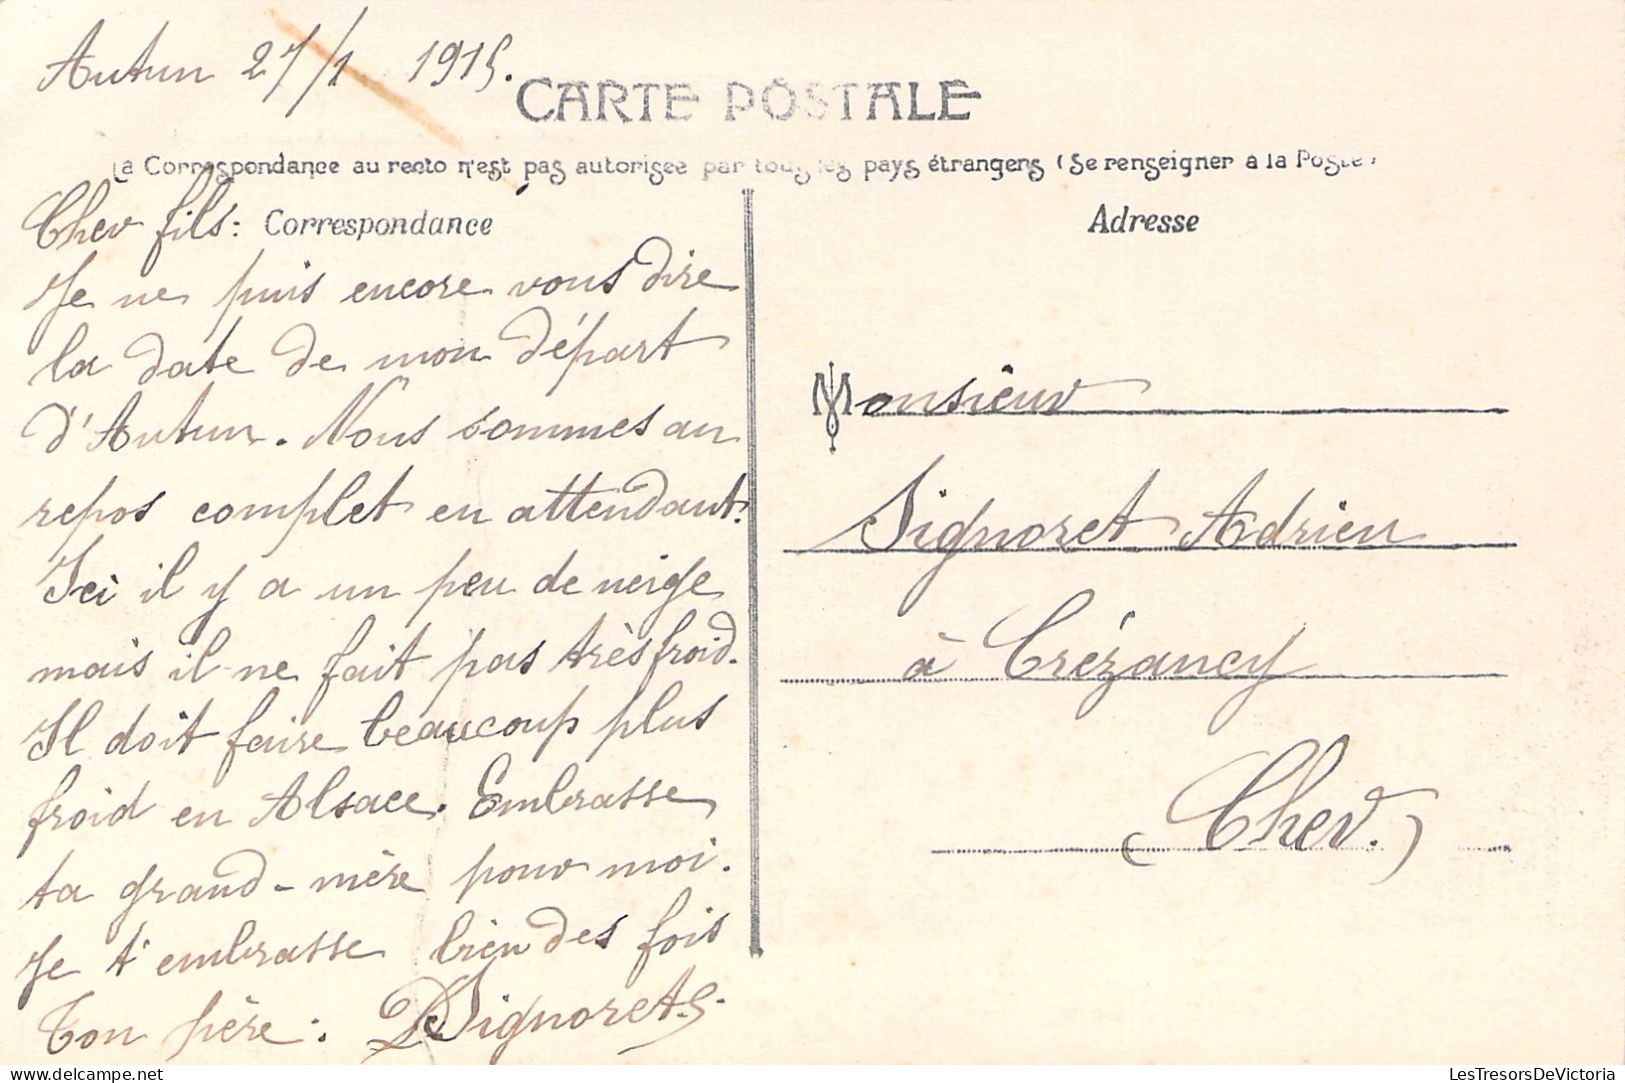 Autun 27/1 1915.
CARTE POSTALE
La Correspondance au recto n'est pas autorisée par tous les pays étrangers (Se renseigner à la Poste)
Cher fils:
Correspondance
Je ne puis encore vous dire
la date de mon départ
d'Autun. Nous sommes au
repos complet en attendant.
Ici il y a un peu de neige
mais il ne fait pas très froid.
Il doit faire beaucoup plus
froid en Alsace. Embrasse
ta grand-mère pour moi.
Je t'embrasse bien des fois
Ton père: Signoret
Adresse
Monsieur
Signoret Adrien
à Crézancy
(Cher.)
LesTresorsDeVictoria
www.delcampe.net